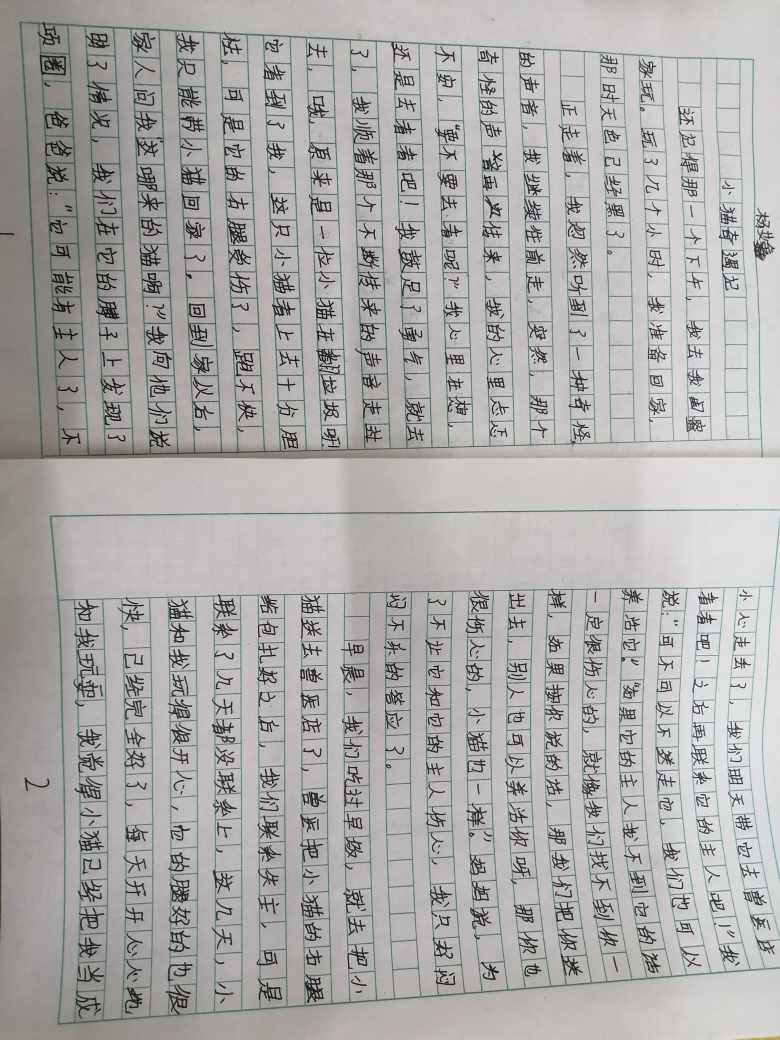 杨
小猫奇遇记
还记得那一个下午，我去我闺蜜
家玩。玩了几个小时，我准备回家，
那时天色已经黑了。
正走着，我忽然听到了一种奇怪
的声音，我继续往前走，突然，那个
奇怪的声音再次传来，我的心里忐忑
不安，“要不要去看呢？”我心里在想，
还是去看看吧！我鼓足了勇气，就去
了，我顺着那个不断传来的声音走过
去，哦，原来是一位小猫在翻垃圾呀
它看到了我，这只小猫看上去十分胆
怯，可是它的右腿受伤了，跑不快，
我只能带小猫回家了，回到家以后，
家人问我“这哪来的猫啊？”我向他们说
明了情况，我们在它的脖子上发现了
项圈，爸爸说：“它可能有主人了，不
1
小心走丢了，我们明天带它去兽医店
看看吧！之后再联系它的主人吧！”我
说：“可不可以不送走它，我们也可以
养活它。”“如果它的主人找不到它的话
一定很伤心的，就像我们找不到你一
样，如果按你说的话，那我们把你送
出去，别人也可以养活你呀，那你也
很伤心的，小猫也一样。”妈妈说，为
了不让它和它的主人伤心，我只好闷
闷不乐的答应了。
早晨，我们吃过早饭，就去把小
猫送去兽医店了，兽医把小猫的右腿
给包扎好之后，我们联系失主，可是
联系了几天都没联系上，这几天，小
猫和我玩得很开心，它的腿好的也很
快，已经完全好了，每天开开心心地
和我玩耍，我觉得小猫已经把我当成
2